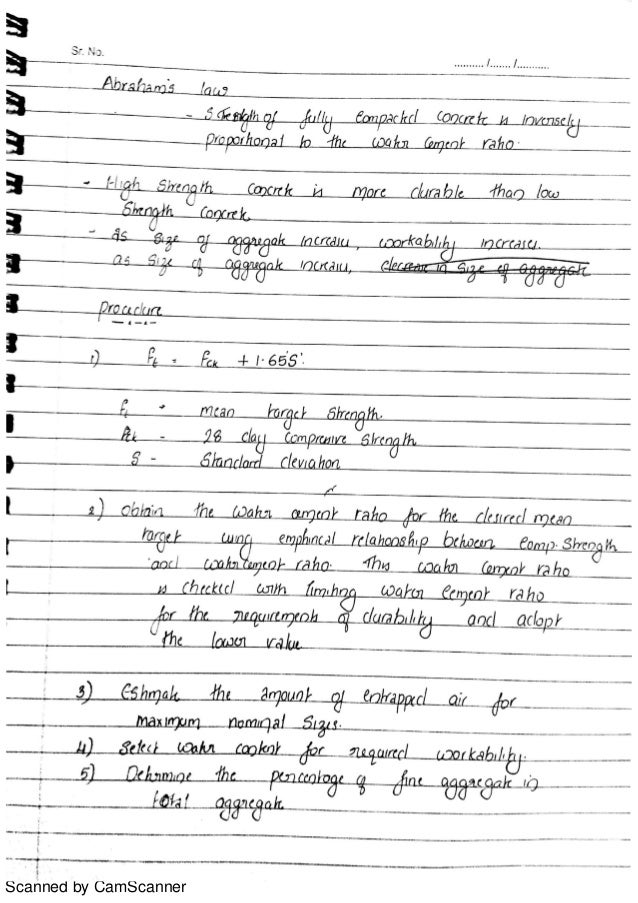 Sr. No.
........../......./...........
Abraham's law
- Strength of fully compacted concrete is inversely
proportional to the water cement ratio.
- High strength concrete is more durable than low
strength concrete
- As size of aggregate increases, workability increases.
as size of aggregate increases, decrease in size of aggregate
procedure
1) ft = fck + 1.65S
ft - mean target strength.
fck - 28 day compressive strength
S - Standard deviation
2) obtain the water cement ratio for the desired mean
target using emphirical relationship between comp. strength
and water cement ratio. This water cement ratio
is checked with limiting water cement ratio
for the requirements of durability and adopt
the lower value
3) Estimate the amount of entrapped air for
maximum nominal sizes.
4) Select water content for required workability.
5) Determine the percentage of fine aggregate in
total aggregate
Scanned by CamScanner